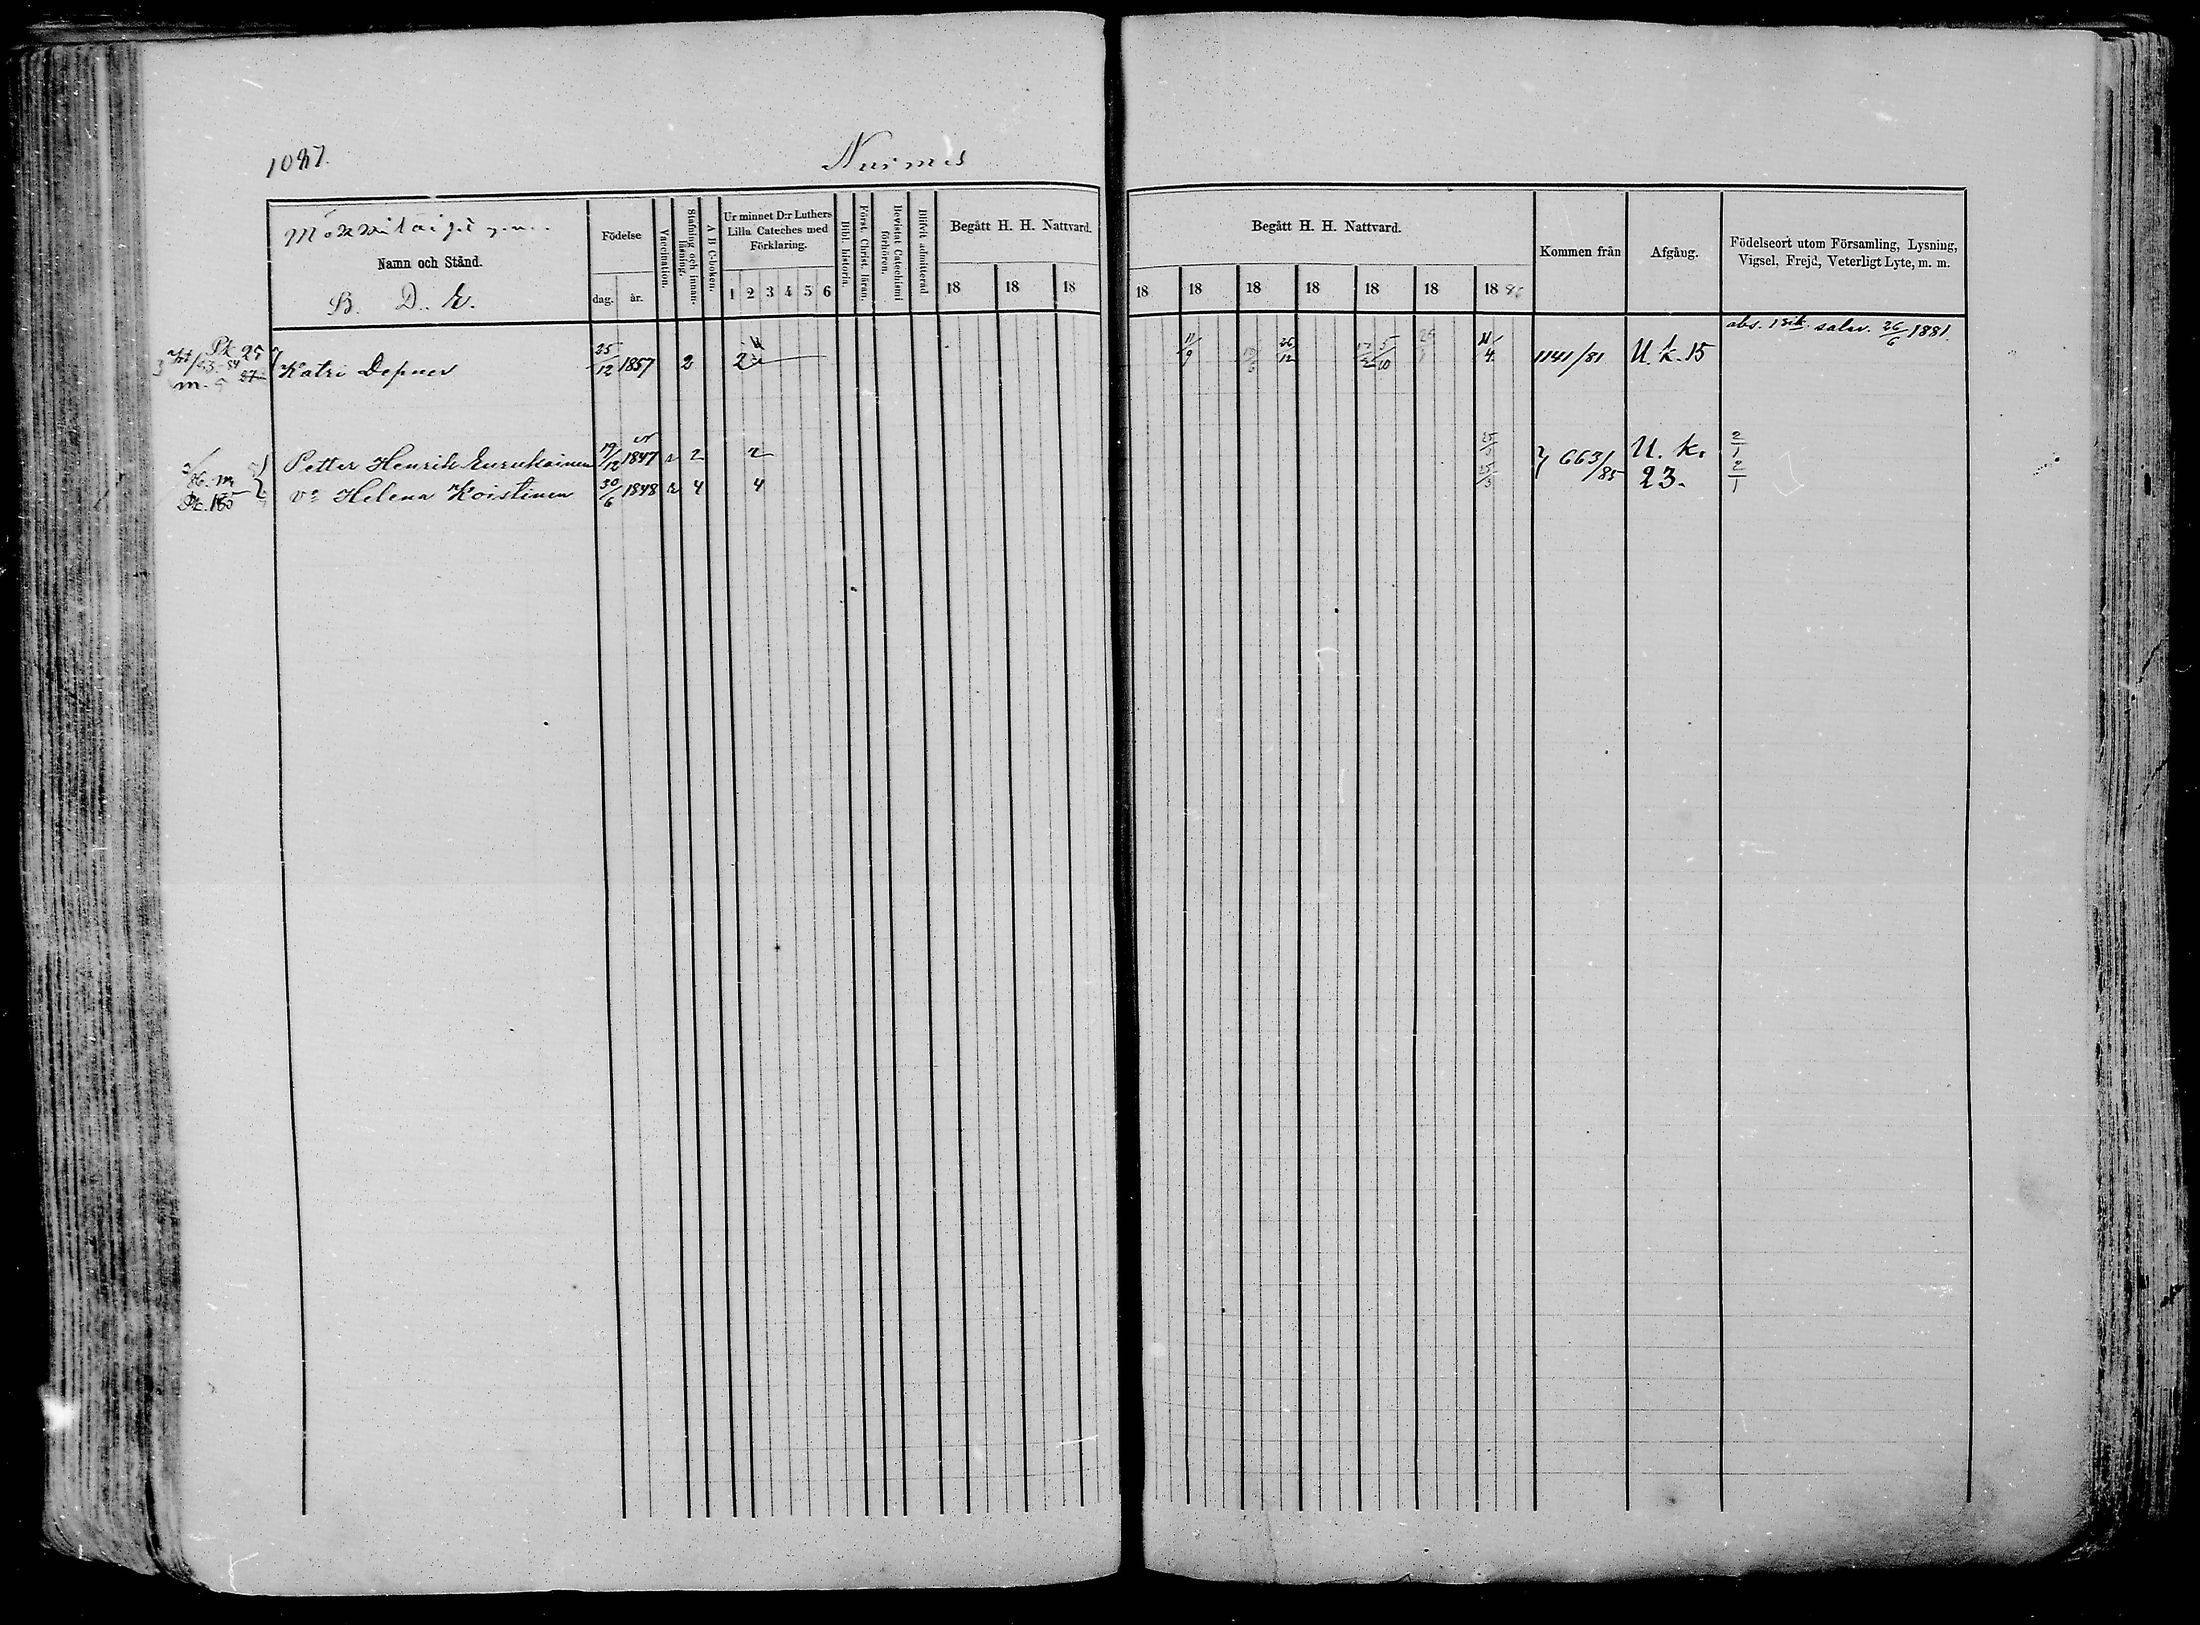 1087.
Nurmes
Namn och Stånd.
B. D. E.
Födelse
dag. år.
Vaccination.
Stafning och innan-
läsning.
A B C-boken.
Ur minnet D:r Luthers
Lilla Cateches med
Förklaring.
1 2 3 4 5 6
Bibl. historia.
Först. Christ. läran.
Bevistat Catechismi
förhören.
Blifvit admitterad
Begått H. H. Nattvard.
18 18 18
Begått H. H. Nattvard.
18 18 18 18 18 18 18
Kommen från
Afgång.
Födelseort utom Församling, Lysning,
Vigsel, Frejd, Veterligt Lyte, m. m.
abs. salv. 26/6 1881.
Katri Depner 25/12 1857 2 2 11/9 26/12 1141/81 U. k. 15
Petter Henrik 19/12 1847 v 2 2 663/85 U. k. 2/1
v:a Helena Koistinen 30/6 1848 v 4 4 23. 2/1